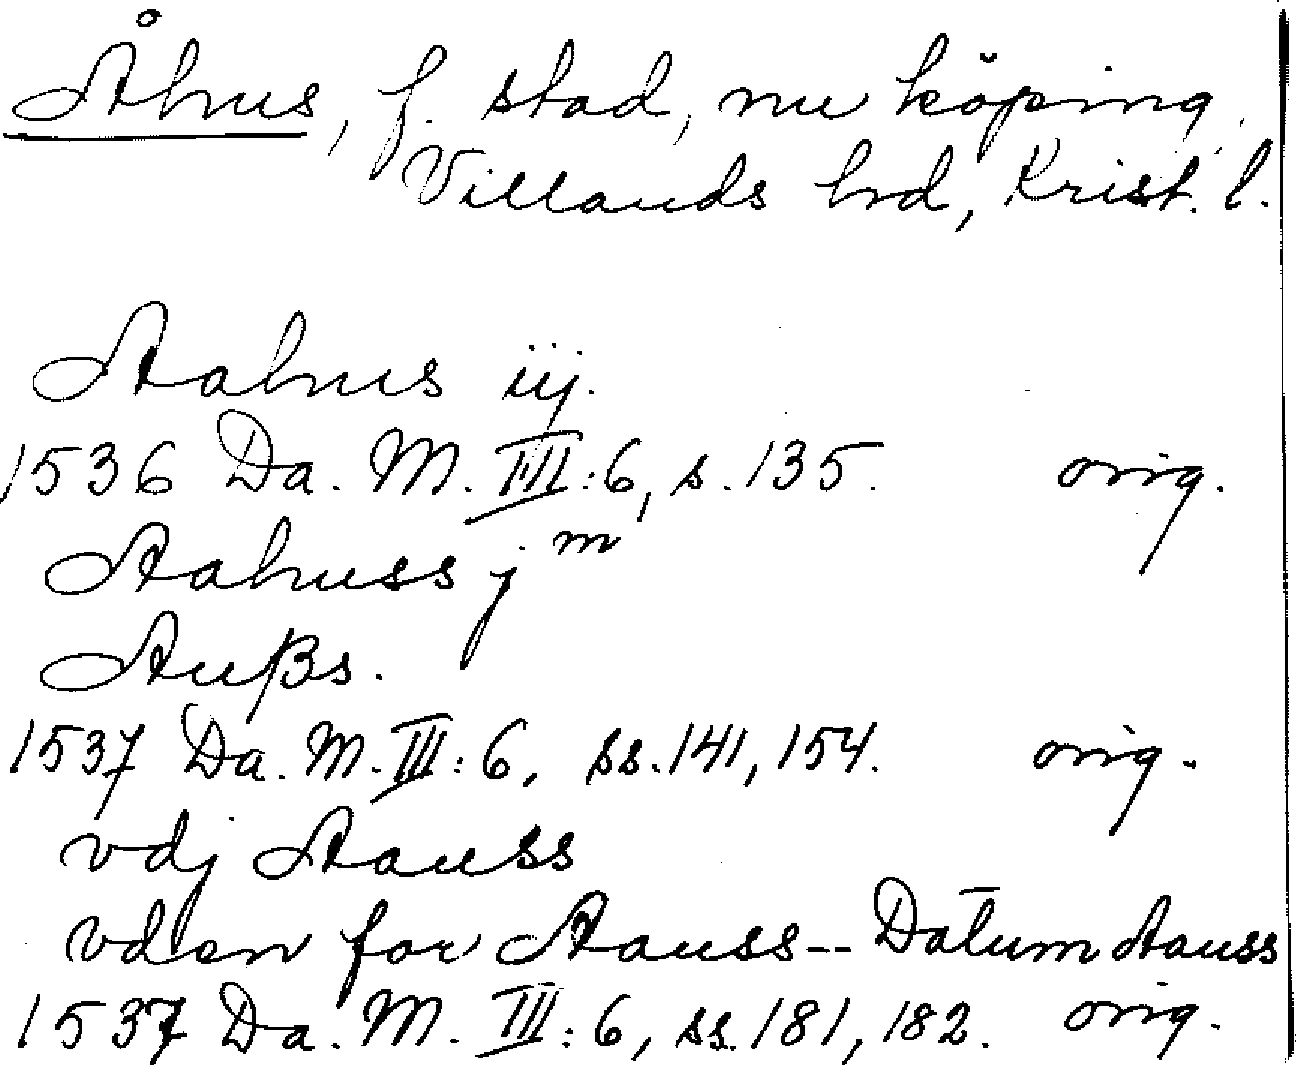 Åhus, f. stad, nu köping,
Villands hrd, Krist. l.
Aahus iij.
1536 Da. M. III:6, s. 135. orig.
Aahuss j m
Außs.
1537 Da. M. III:6, ss. 141, 154. orig.
vdj Aauss
vden for Aauss -- Datum Aauss
1537 Da. M. III:6, ss. 181, 182. orig.